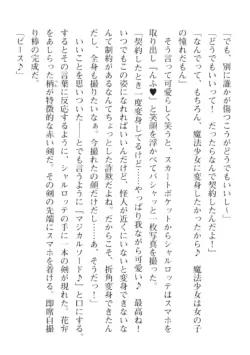 でも、別に誰かが傷つこうがどうでもいいし~
「どうでもいいって！　なら何で契約したんだよ！」
「なんでって、もちろん、魔法少女に変身したかったから♪　魔法少女は女の子
の憧れだもん」
　そう言って可愛らしく笑うと、スカートポケットからシャルロッテはスマホを
取り出し「んふ♥」と笑顔を浮かべてパシャッと一枚写真を撮った。
「契約したとき一度変身してるけど……やっぱり我ながら可愛い♪　最高ね！
いつでもこの姿になれればいいんだけど、怪人が近くにいないと変身できない
なんて制約があるなんてちょっとした詐欺だよね。だからこそ、折角変身できたん
だし、全身も撮りたいなぁ。今撮れたの顔だけだし……あ、そうだっ！」
　いいことを思いついた――とでも言うようにシャルロッテは「マジカルソード♪」と口にする。
するとその言葉に反応するように、シャルロッテの手に一本の剣が現れた。花びら
をあしらった柄が特徴的な赤い剣だ。その剣の先端にスマホを着ける。即席自撮
り棒の完成だ。
「ピース♪」